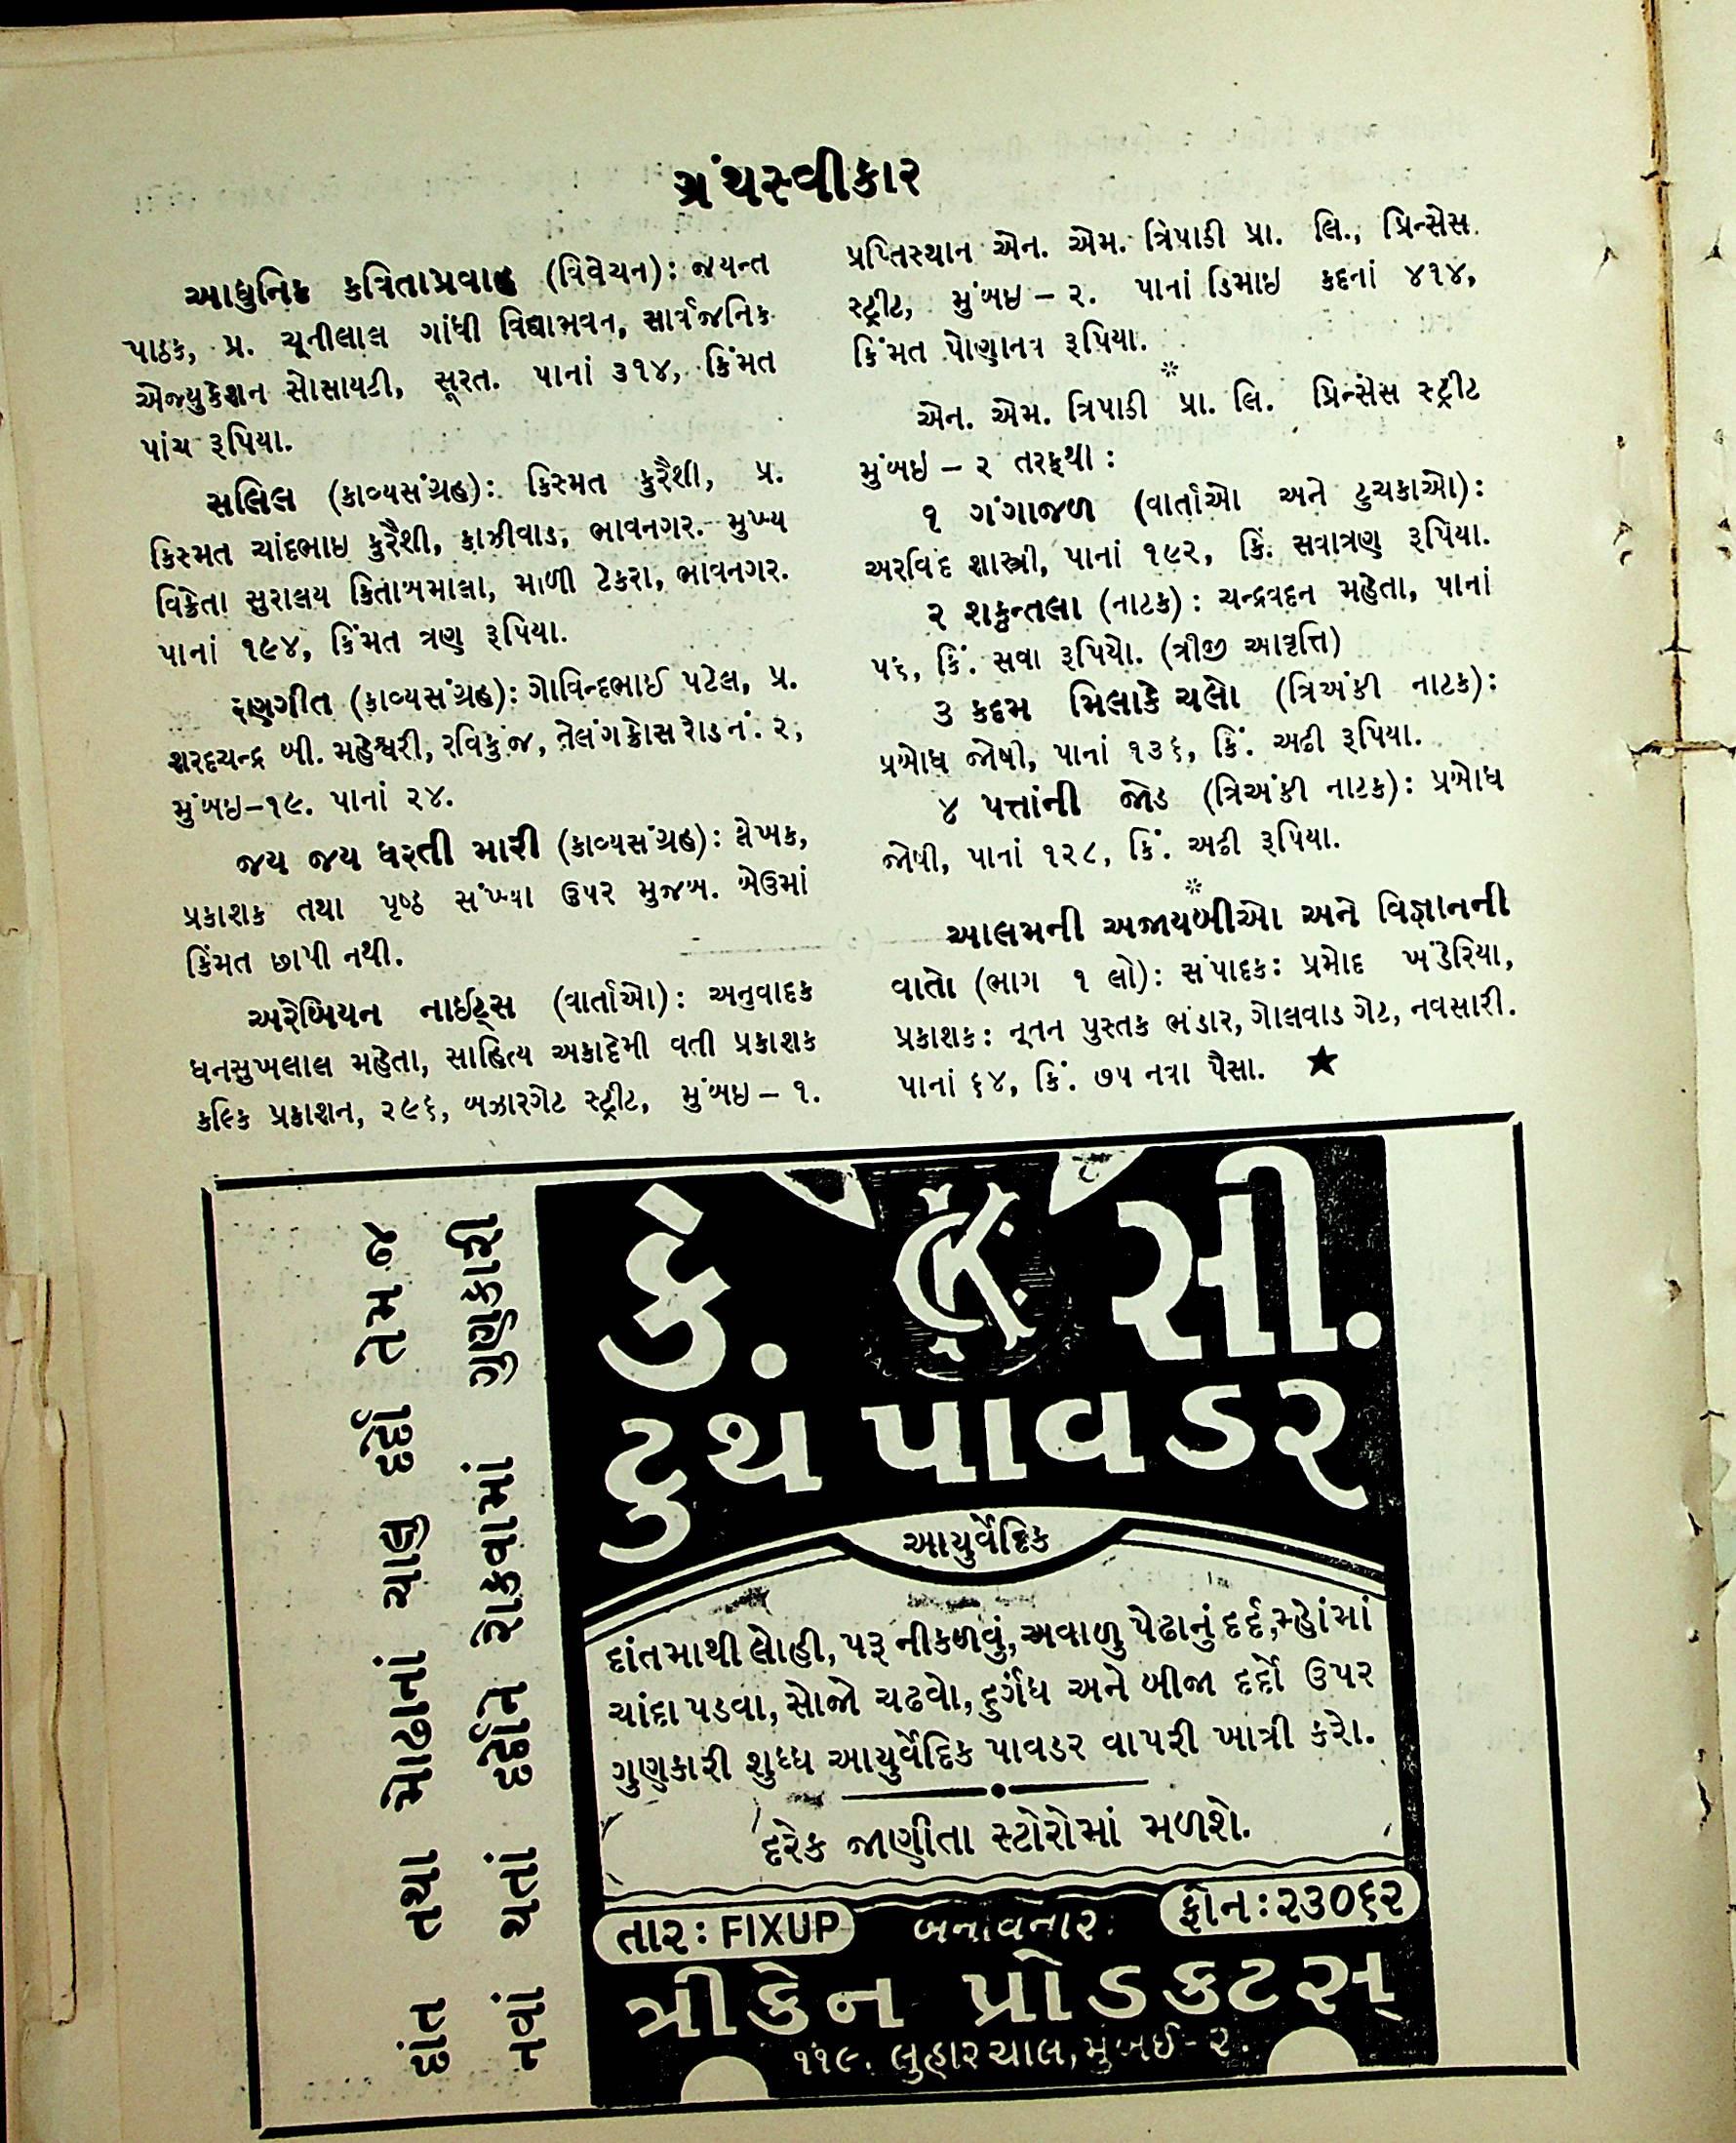 ગ્રંથસ્વીકાર
આધુનિક કવિતાપ્રવાહ (વિવેચન): જયન્ત
પાઠક, પ્ર. ચૂનીલાલ ગાંધી વિદ્યાભવન, સાર્વજનિક
એજ્યુકેશન સોસાયટી, સૂરત. પાનાં ૩૧૪, કિંમત
પાંચ રૂપિયા.
સલિલ (કાવ્યસંગ્રહ): કિસ્મત કુરૈશી, પ્ર.
કિસ્મત ચાંદભાઇ કુરૈશી, કાઝીવાડ, ભાવનગર. મુખ્ય
વિક્રેતા સુરાલય કિતાબમાલા, માળી ટેકરા, ભાવનગર.
પાનાં ૧૯૪, કિંમત ત્રણ રૂપિયા.
રણગીત (કાવ્યસંગ્રહ): ગોવિન્દભાઈ પટેલ, પ્ર.
શરદચન્દ્ર બી. મહેશ્વરી, રવિકુંજ, તેલંગક્રોસ રોડ નં. ૨,
મુંબઇ-૧૯. પાનાં ૨૪.
જય જય ધરતી મારી (કાવ્યસંગ્રહ): લેખક,
પ્રકાશક તથા પૃષ્ઠ સંખ્યા ઉપર મુજબ. બેઉમાં
કિંમત છાપી નથી.
અરેબિયન નાઈટ્સ (વાર્તાઓ): અનુવાદક
ધનસુખલાલ મહેતા, સાહિત્ય અકાદેમી વતી પ્રકાશક
કલ્કિ પ્રકાશન, ૨૯૬, બઝારગેટ સ્ટ્રીટ, મુંબઇ – ૧.
પ્રપ્તિસ્થાન એન. એમ. ત્રિપાઠી પ્રા. લિ., પ્રિન્સેસ
સ્ટ્રીટ, મુંબઇ – ૨. પાનાં ડિમાઇ કદનાં ૪૧૪,
કિંમત પોણાનવ રૂપિયા.
*
એન. એમ. ત્રિપાઠી પ્રા. લિ. પ્રિન્સેસ સ્ટ્રીટ
મુંબઇ – ૨ તરફથી :
૧ ગંગાજળ (વાર્તાઓ અને ટુચકાઓ):
અરવિંદ શાસ્ત્રી, પાનાં ૧૯૨, કિં. સવાત્રણ રૂપિયા.
૨ શકુન્તલા (નાટક): ચન્દ્રવદન મહેતા, પાનાં
૫૬, કિં. સવા રૂપિયો. (ત્રીજી આવૃત્તિ)
૩ કદમ મિલાકે ચલો (ત્રિઅંકી નાટક):
પ્રબોધ જોષી, પાનાં ૧૩૬, કિં. અઢી રૂપિયા.
૪ પત્તાંની જોડ (ત્રિઅંકી નાટક): પ્રબોધ
જોષી, પાનાં ૧૨૮, કિં. અઢી રૂપિયા.
*
આલમની અજાયબીઓ અને વિજ્ઞાનની
વાતો (ભાગ ૧ લો): સંપાદક: પ્રમોદ ખંડેરિયા,
પ્રકાશક: નૂતન પુસ્તક ભંડાર, ગોલવાડ ગેટ, નવસારી.
પાનાં ૬૪, કિં. ૭૫ નવા પૈસા. ★
દાંત તથા મોઢાનાં ચાલુ દર્દો તેમ જ
નવાં થતાં દર્દોને રોકવામાં ગુણકારી
કે. CK સી.
ટુથ પાવડર
આયુર્વેદિક
દાંતમાથી લોહી, પરૂ નીકળવું, અવાળુ પેઢાનું દર્દ, મ્હોંમાં
ચાંદા પડવા, સોજો ચઢવો, દુર્ગંધ અને બીજા દર્દો ઉપર
ગુણકારી શુધ્ધ આયુર્વેદિક પાવડર વાપરી ખાત્રી કરો.
દરેક જાણીતા સ્ટોરોમાં મળશે.
તાર: FIXUP બનાવનાર: ફોન: ૨૩૦૬૨
ત્રીકેન પ્રોડકટસ્
૧૧૯. લુહાર ચાલ, મુંબઈ - ૨.